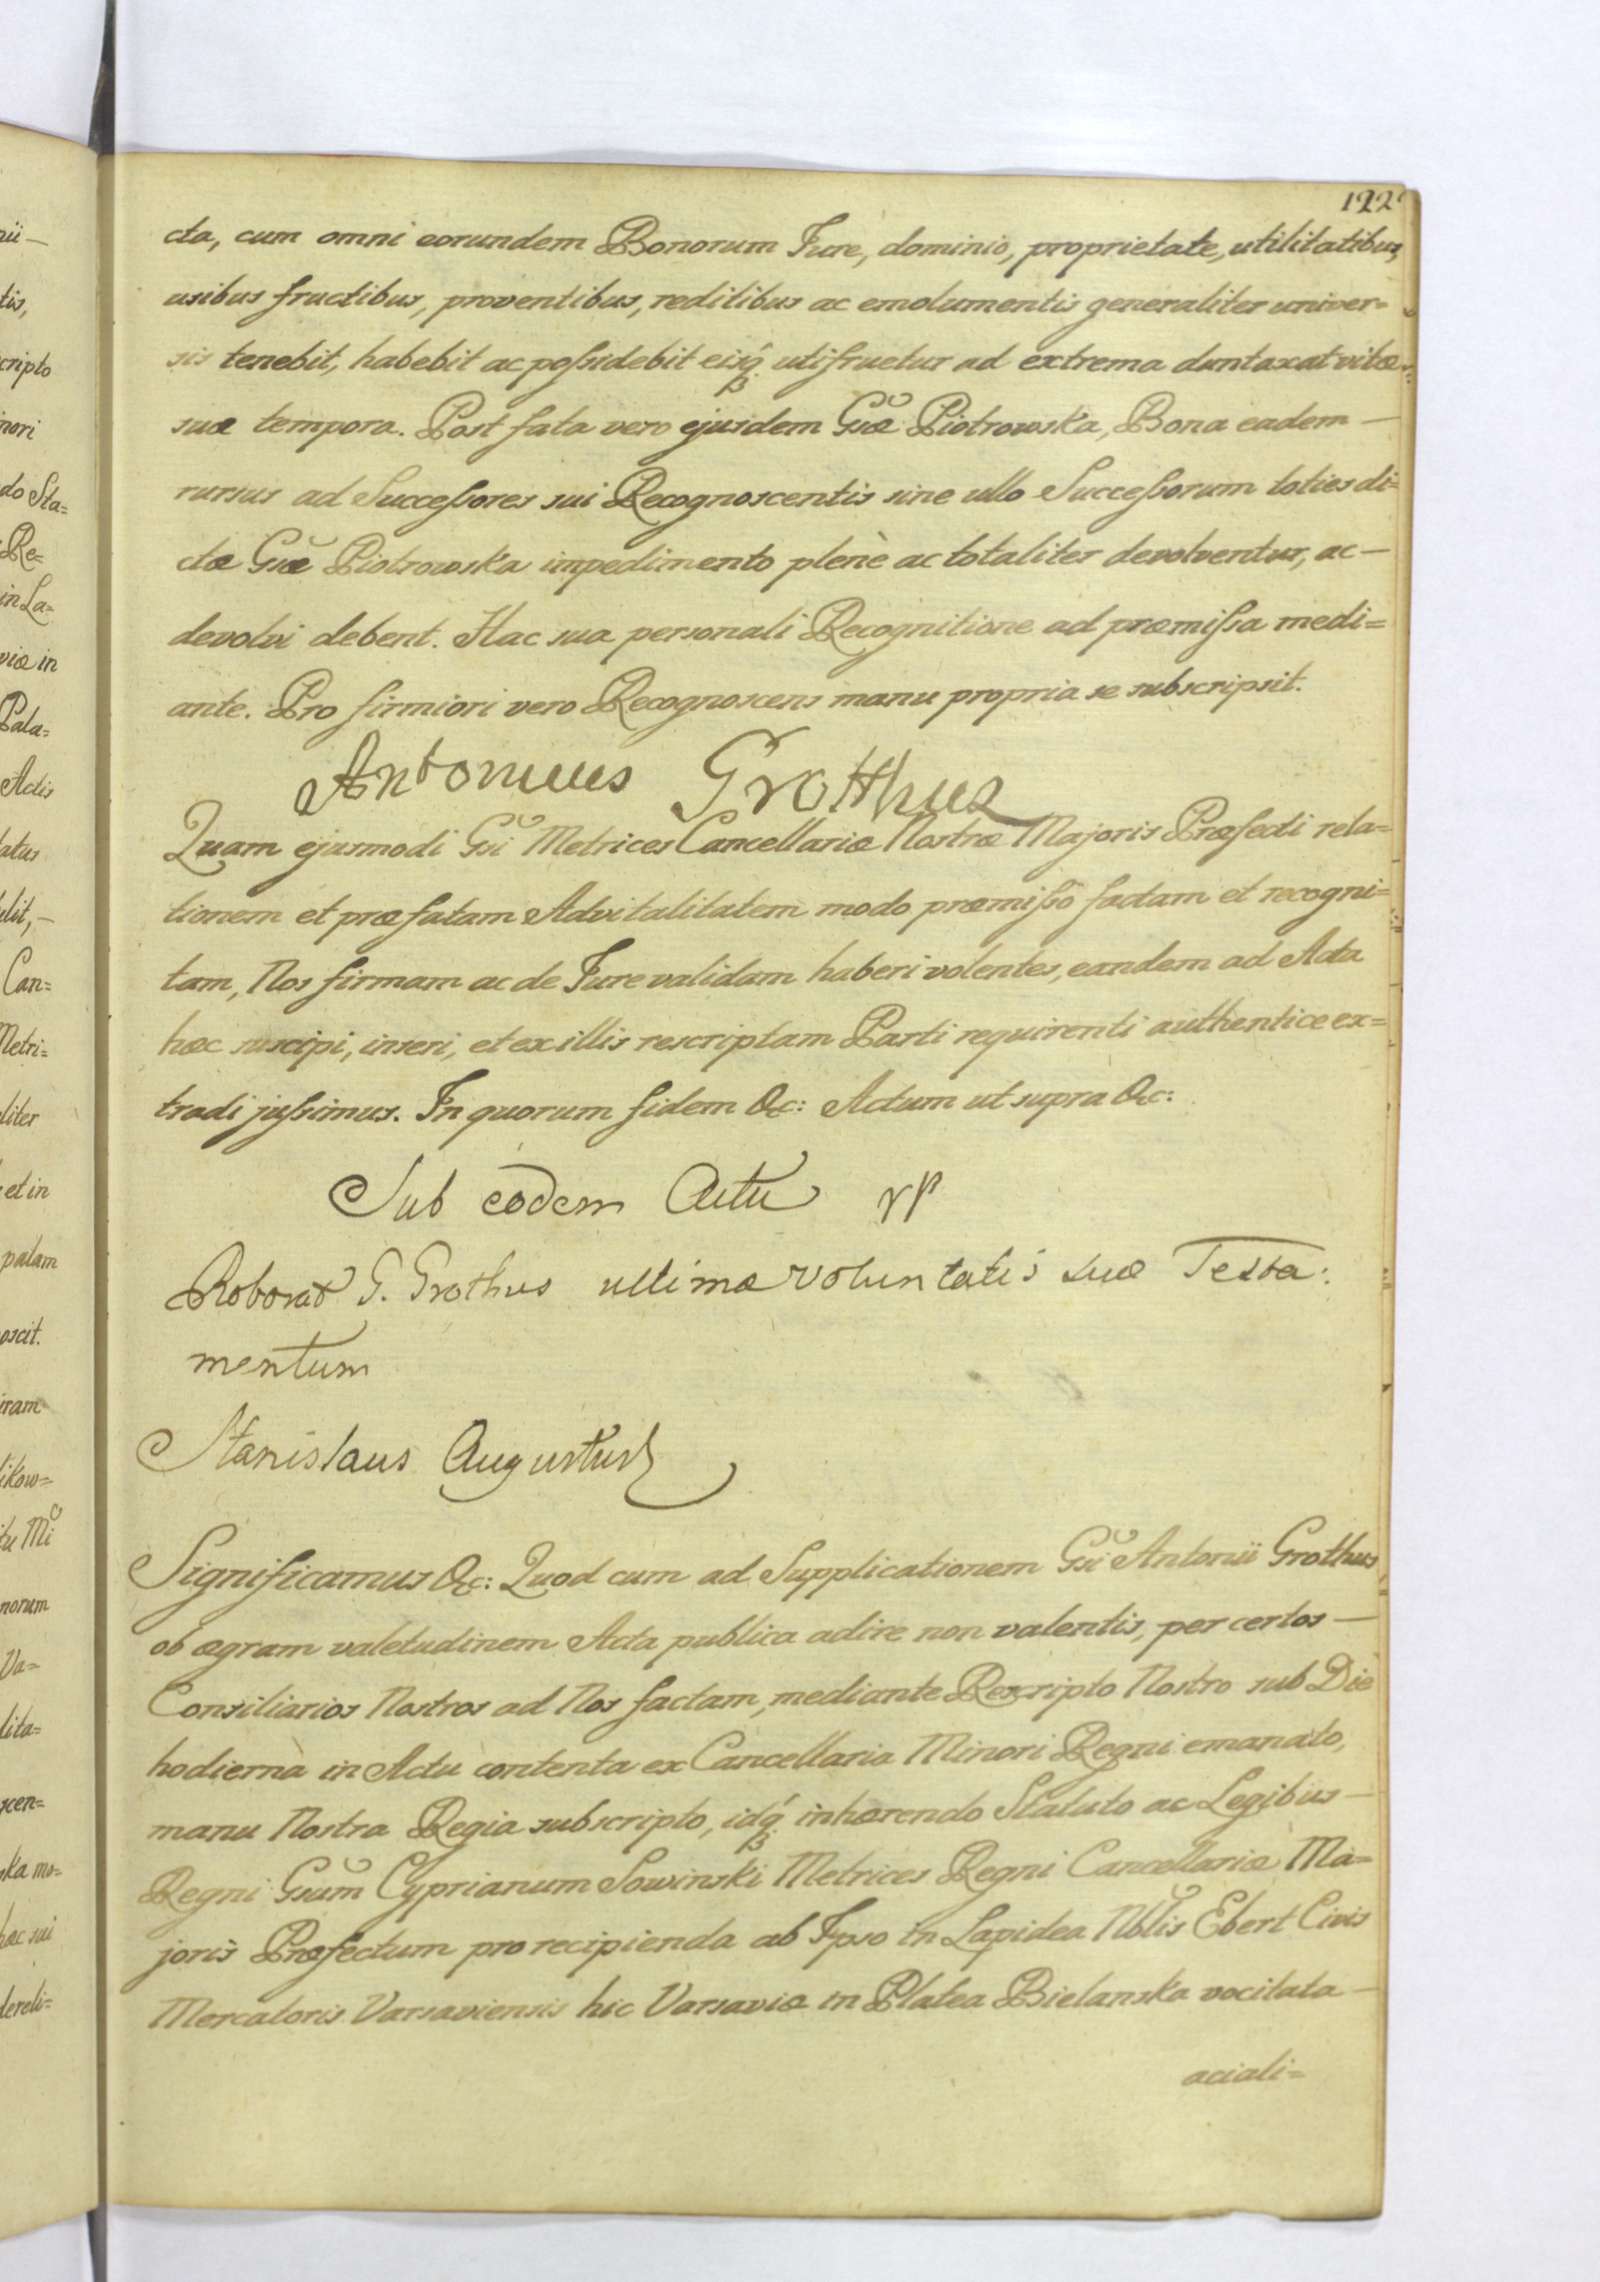 122
cta, cum omni eorundem Bonorum Jure, dominio, proprietate, utilitatibus,
usibus fructibus, proventibus, reditibus ac emolumentis generaliter univer=
sis tenebit, habebit ac possidebit eisq́ꝫ utifruetur ad extrema duntaxat vitæ
suæ tempora. Post fata vero ejusdem Gsæ Piotrowska, Bona eadem —
rursus ad Successores sui Recognoscentis sine ullo Successorum toties di=
ctæ Gsæ Piotrowska impedimento plenè ac totaliter devolventur, ac —
devolvi debent. Hac sua personali Recognitione ad præmissa medi=
ante. Pro firmiori vero Recognoscens manu propria se subscripsit.
Antonius Grotthus
Quam ejusmodi Gsi Metrices Cancellariæ Nostræ Majoris Præfecti rela=
tionem et præfatam Advitalitatem modo præmisso factam et recogni=
tam, Nos firmam ac de Jure validam haberi volentes, eandem ad Acta
hæc suscipi, inseri, et ex illis rescriptam Parti requirenti authentice ex=
tradi jussimus. In quorum fidem &c: Actum ut supra &c:
Sub eodem Actu
Roborat G. Grothus ultimæ voluntatis suæ Testa:
mentum
Stanislaus Augustus
Significamus &c: Quod cum ad Supplicationem Gsi Antonii Grothus
ob ægram valetudinem Acta publica adire non valentis, per certos —
Consiliarios Nostros ad Nos factam, mediante Rescripto Nostro sub Die
hodierna in Actu contenta ex Cancellaria Minori Regni emanato,
manu Nostra Regia subscripto, idq́ꝫ inhærendo Statuto ac Legibus —
Regni Gsum Cyprianum Sowinski Metrices Regni Cancellariæ Ma=
joris Præfectum pro recipienda ab Ipso in Lapidea Nblis Ebert Civis
Mercatoris Varsaviensis hic Varsaviæ in Platea Bielanska vocitata —
aciali=